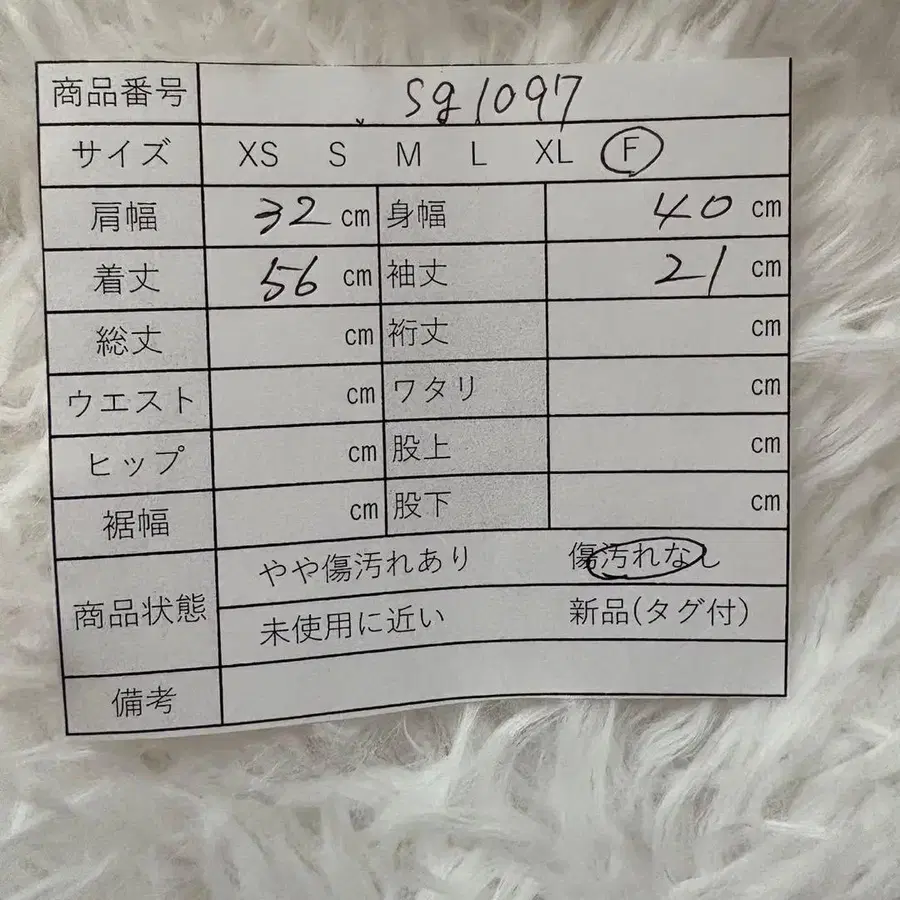 商品番号 sg1097
サイズ XS S M L XL F
肩幅 32 cm 身幅 40 cm
着丈 56 cm 袖丈 21 cm
総丈 cm 裄丈 cm
ウエスト cm ワタリ cm
ヒップ cm 股上 cm
裾幅 cm 股下 cm
商品状態 やや傷汚れあり 傷汚れなし
未使用に近い 新品(タグ付)
備考